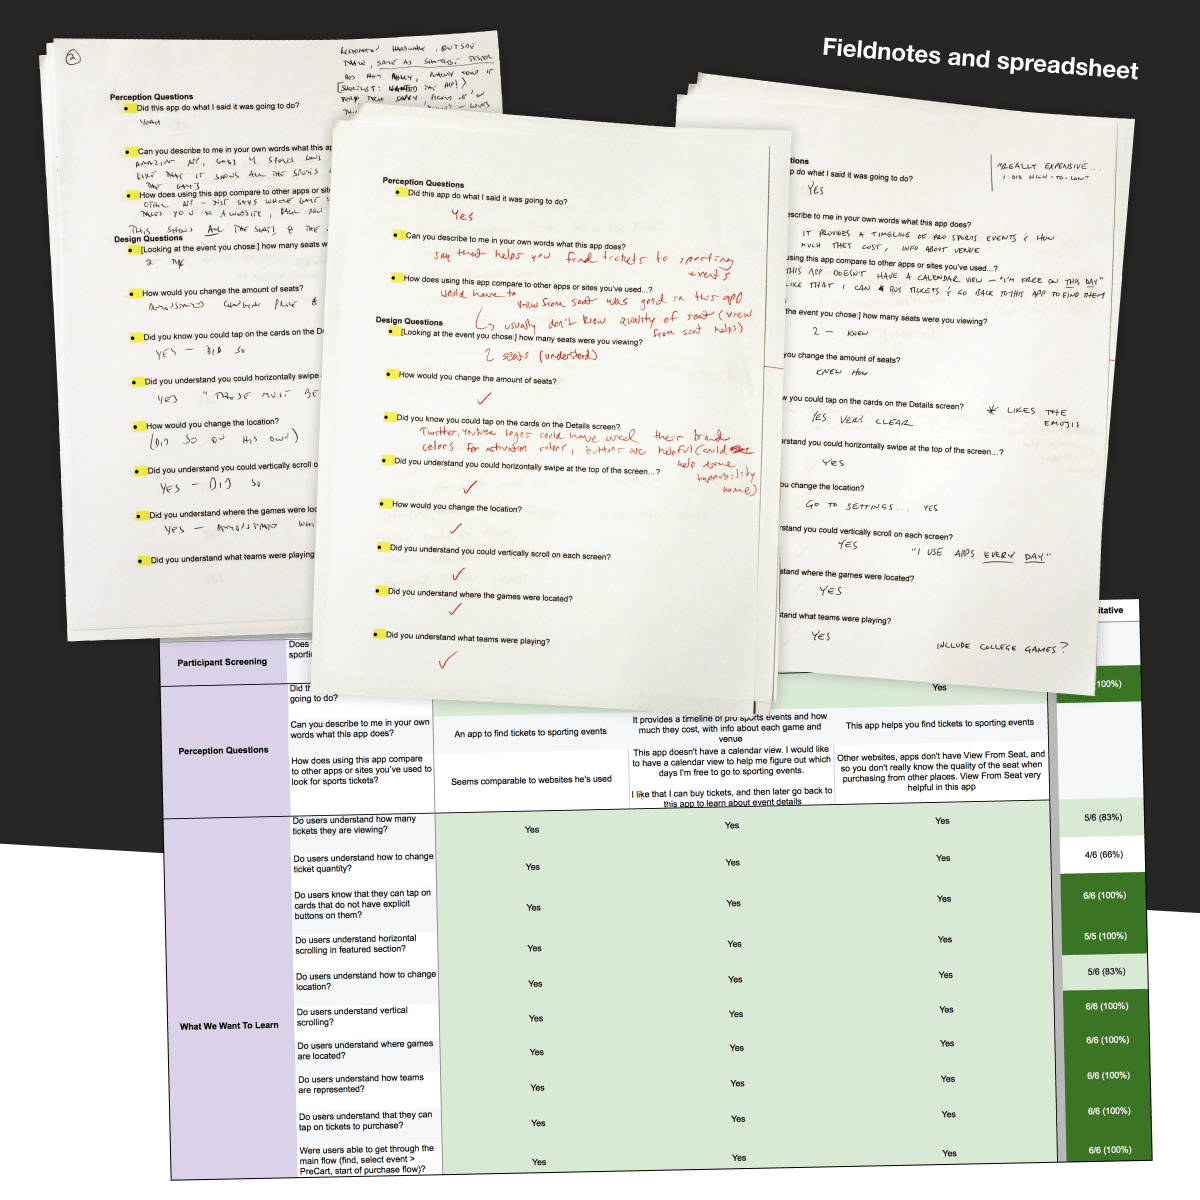 Fieldnotes and spreadsheet
2
Perception Questions
Did this app do what I said it was going to do?
YEAH
Can you describe to me in your own words what this ap
How does using this app compare to other apps or sit
THIS SHOWS ALL THE SEATS & THE
Design Questions
[Looking at the event you chose:] how many seats w
2
How would you change the amount of seats?
Did you know you could tap on the cards on the D
YES - DID SO
Did you understand you could horizontally swipe
YES "THESE MUST BE
How would you change the location?
(DID SO ON HIS OWN)
Did you understand you could vertically scroll o
YES - DID SO
Did you understand where the games were loc
YES -
Did you understand what teams were playing
Perception Questions
Did this app do what I said it was going to do?
Yes
Can you describe to me in your own words what this app does?
say that helps you find tickets to sporting
events
How does using this app compare to other apps or sites you've used...?
would have to view from seat was good in this app
usually don't know quality of seat (view
from seat helps)
Design Questions
[Looking at the event you chose:] how many seats were you viewing?
2 seats (understand)
How would you change the amount of seats?
Did you know you could tap on the cards on the Details screen?
Twitter, Youtube logos could have used their brand
colors for activation color, buttons are helpful (could
help some
tappability
Did you understand you could horizontally swipe at the top of the screen...?
How would you change the location?
Did you understand you could vertically scroll on each screen?
Did you understand where the games were located?
Did you understand what teams were playing?
tions
p do what I said it was going to do?
YES
"REALLY EXPENSIVE...
I DID HIGH-TO-LOW"
scribe to me in your own words what this app does?
IT PROVIDES A TIMELINE OF PRO SPORTS EVENTS & HOW
MUCH THEY COST, INFO ABOUT VENUE
using this app compare to other apps or sites you've used...?
THIS APP DOESN'T HAVE A CALENDAR VIEW - "I'M FREE ON THIS DAY"
LIKE THAT I CAN BUY TICKETS & GO BACK TO THIS APP TO FIND THEM
the event you chose:] how many seats were you viewing?
2 - KNEW
you change the amount of seats?
KNEW HOW
w you could tap on the cards on the Details screen?
YES VERY CLEAR
* LIKES THE
EMOJIS
rstand you could horizontally swipe at the top of the screen...?
YES
ou change the location?
GO TO SETTINGS... YES
rstand you could vertically scroll on each screen?
YES "I USE APPS EVERY DAY"
stand where the games were located?
YES
stand what teams were playing?
YES
INCLUDE COLLEGE GAMES?
itative
Participant Screening
Does
sporti
Did th
going to do?
Yes
100%)
Perception Questions
Can you describe to me in your own
words what this app does?
An app to find tickets to sporting events
It provides a timeline of pro sports events and how
much they cost, with info about each game and
venue
This app helps you find tickets to sporting events
How does using this app compare
to other apps or sites you've used to
look for sports tickets?
Seems comparable to websites he's used
This app doesn't have a calendar view. I would like
to have a calendar view to help me figure out which
days I'm free to go to sporting events.
I like that I can buy tickets, and then later go back to
this app to learn about event details
Other websites, apps don't have View From Seat, and
so you don't really know the quality of the seat when
purchasing from other places. View From Seat very
helpful in this app
What We Want To Learn
Do users understand how many
tickets they are viewing?
Yes Yes Yes 5/6 (83%)
Do users understand how to change
ticket quantity?
Yes Yes Yes 4/6 (66%)
Do users know that they can tap on
cards that do not have explicit
buttons on them?
Yes Yes Yes 6/6 (100%)
Do users understand horizontal
scrolling in featured section?
Yes Yes Yes 5/5 (100%)
Do users understand how to change
location?
Yes Yes Yes 5/6 (83%)
Do users understand vertical
scrolling?
Yes Yes Yes 6/6 (100%)
Do users understand where games
are located?
Yes Yes Yes 6/6 (100%)
Do users understand how teams
are represented?
Yes Yes Yes 6/6 (100%)
Do users understand that they can
tap on tickets to purchase?
Yes Yes Yes 6/6 (100%)
Were users able to get through the
main flow (find, select event >
PreCart, start of purchase flow)?
Yes Yes Yes 6/6 (100%)